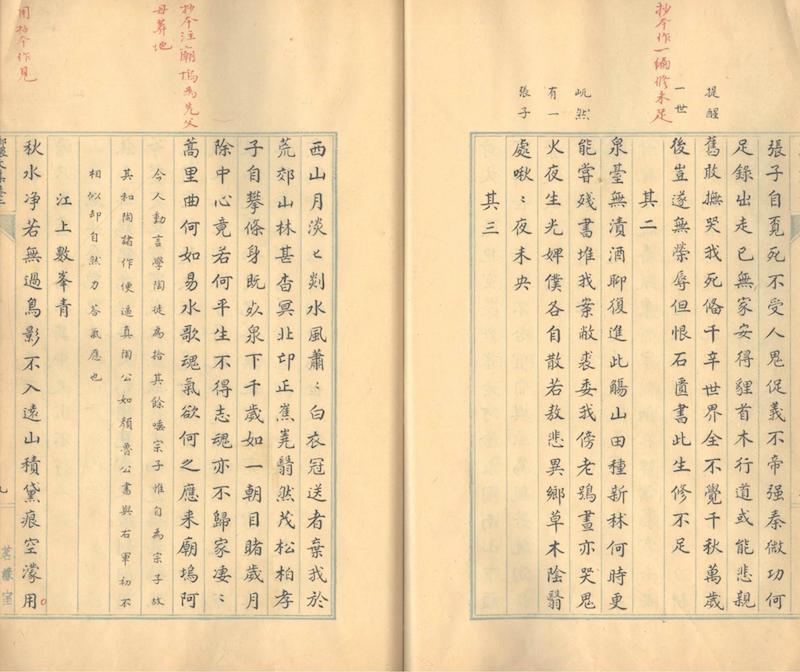 抄本作一編修未足
提醒
一世
屼然
有一
張子
張子自覓死不受人鬼促義不帝强秦微功何
足錄出走已無家安得貍首木行道或能悲親
舊敢撫哭我死備千辛世界全不覺千秋萬歳
後豈遂無榮辱但恨石匱書此生修不足
其二
泉臺無漬酒聊復進此觴山田種新秫何時更
能嘗殘書堆我案敝裘委我傍老鴞晝亦哭鬼
火夜生光婢僕各自散若敖悲異鄉草木陰翳
處啾〻夜未央
其三
抄本注廟塢為先父
母葬地
用抄本作見
西山月淡〻剡水風蕭〻白衣冠送者棄我於
荒郊山林甚杳冥北邙正蕉嶤翳然茂松柏孝
子自攀條身既泉下千歳如一朝目睹歲月
除中心竟若何平生不得志魂亦不歸家凄〻
蒿里曲何如易水歌魂氣欲何之應来廟塢阿
今人動言學陶徒為拾其餘唾宗子惟自為宗子故
其和陶諸作便逼真陶公如顔魯公書與右軍初不
相似却自然力荅氣應也
江上數峯青
秋水净若無過鳥影不入遠山積黛痕空濛用
九
室